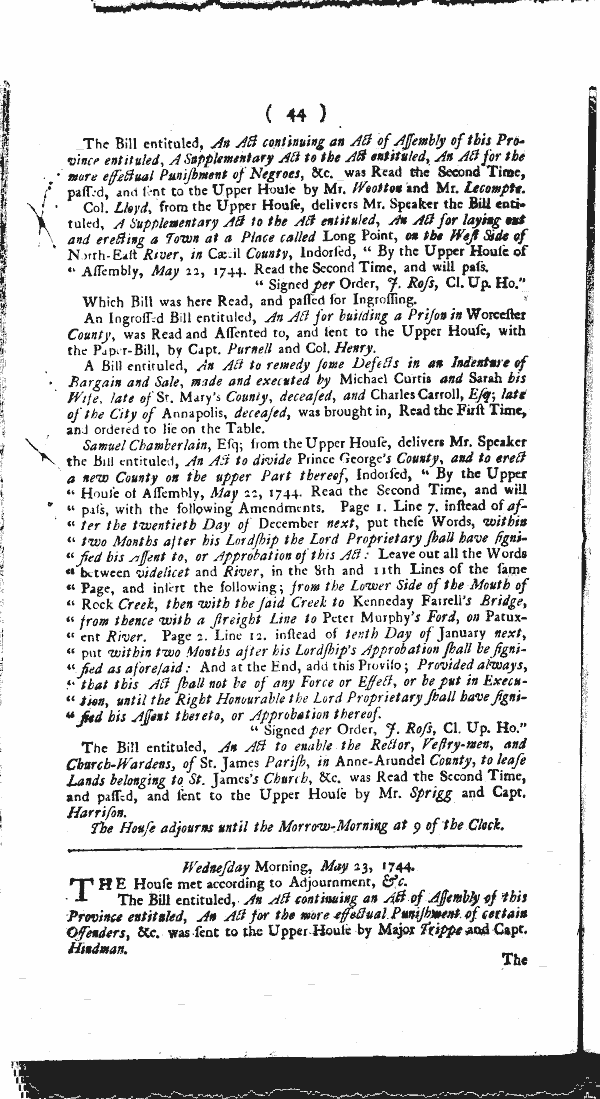 ( 44 )
The Bill entituled, An Act continuing an Act of Aſſembly of this Pro-
vince entituled, A Supplementary Act to the Act entituled, An Act for the
more effectual Puniſhment of Negroes, &c. was Read the Second Time,
paſſed, and ſent to the Upper Houſe by Mr. Wootton and Mr. Lecompte.
Col. Lloyd, from the Upper Houſe, delivers Mr. Speaker the Bill enti-
tuled, A Supplementary Act to the Act entituled, An Act for laying out
and erecting a Town at a Place called Long Point, on the Weſt Side of
North-Eaſt River, in Cæcil County, Indorſed, “ By the Upper Houſe of
“ Aſſembly, May 22, 1744. Read the Second Time, and will paſs.
“ Signed per Order, J. Roſs, Cl. Up. Ho.”
Which Bill was here Read, and paſſed for Ingroſſing.
An Ingroſſed Bill entituled, An Act for building a Priſon in Worceſter
County, was Read and Aſſented to, and ſent to the Upper Houſe, with
the Paper-Bill, by Capt. Purnell and Col. Henry.
A Bill entituled, An Act to remedy ſome Defects in an Indenture of
Bargain and Sale, made and executed by Michael Curtis and Sarah his
Wife, late of St. Mary's County, deceaſed, and Charles Carroll, Eſq; late
of the City of Annapolis, deceaſed, was brought in, Read the Firſt Time,
and ordered to lie on the Table.
Samuel Chamberlain, Eſq; from the Upper Houſe, delivers Mr. Speaker
the Bill entituled, An Act to divide Prince George's County, and to erect
a new County on the upper Part thereof, Indorſed, “ By the Upper
“ Houſe of Aſſembly, May 22, 1744. Read the Second Time, and will
“ paſs, with the following Amendments. Page 1. Line 7. inſtead of af-
“ ter the twentieth Day of December next, put theſe Words, within
“ two Months after his Lordſhip the Lord Proprietary ſhall have ſigni-
“ fied his Aſſent to, or Approbation of this Act: Leave out all the Words
“ between videlicet and River, in the 8th and 11th Lines of the ſame
“ Page, and inſert the following; from the Lower Side of the Mouth of
“ Rock Creek, then with the ſaid Creek to Kenneday Farrell's Bridge,
“ from thence with a ſtreight Line to Peter Murphy's Ford, on Patux-
“ ent River. Page 2. Line 12. inſtead of tenth Day of January next,
“ put within two Months after his Lordſhip's Approbation ſhall be ſigni-
“ fied as aforeſaid: And at the End, add this Proviſo; Provided always,
“ that this Act ſhall not be of any Force or Effect, or be put in Execu-
“ tion, until the Right Honourable the Lord Proprietary ſhall have ſigni-
“ fied his Aſſent thereto, or Approbation thereof.
“ Signed per Order, J. Roſs, Cl. Up. Ho.”
The Bill entituled, An Act to enable the Rector, Veſtry-men, and
Church-Wardens, of St. James Pariſh, in Anne-Arundel County, to leaſe
Lands belonging to St. James's Church, &c. was Read the Second Time,
and paſſed, and ſent to the Upper Houſe by Mr. Sprigg and Capt.
Harriſon.
The Houſe adjourns until the Morrow-Morning at 9 of the Clock.
Wedneſday Morning, May 23, 1744.
THE Houſe met according to Adjournment, &c.
The Bill entituled, An Act continuing an Act of Aſſembly of this
Province entituled, An Act for the more effectual Puniſhment of certain
Offenders, &c. was ſent to the Upper Houſe by Major Trippe and Capt.
Hindman.
The